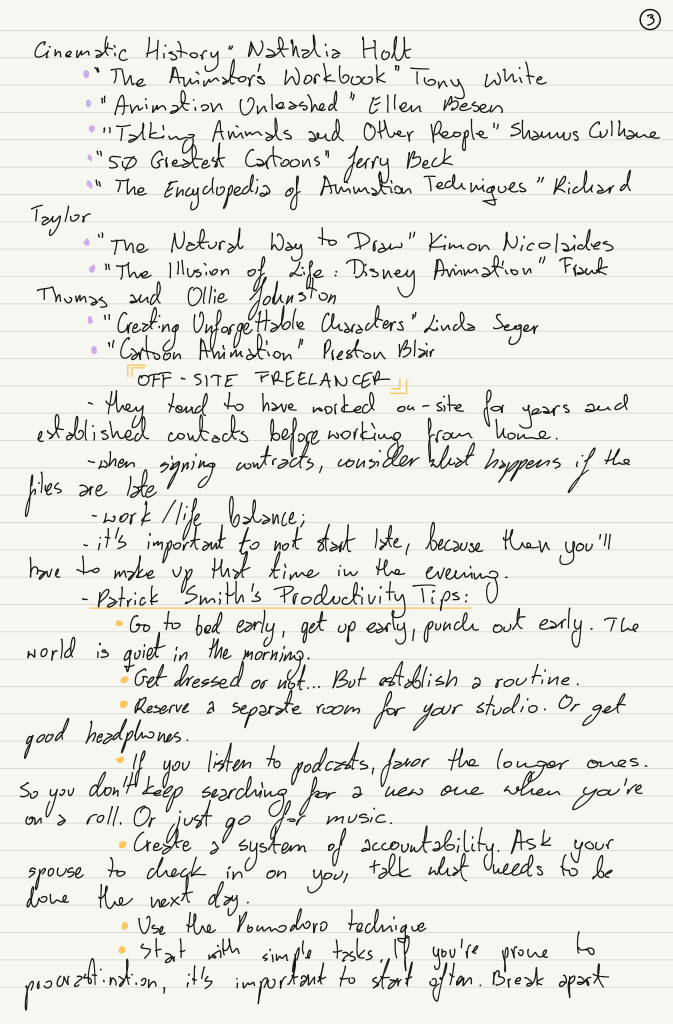 3
Cinematic History" Nathalia Holt
• "The Animator's Workbook" Tony White
• "Animation Unleashed" Ellen Besen
• "Talking Animals and Other People" Shamus Culhane
• "50 Greatest Cartoons" Jerry Beck
• "The Encyclopedia of Animation Techniques" Richard
Taylor
• "The Natural Way to Draw" Kimon Nicolaides
• "The Illusion of Life: Disney Animation" Frank
Thomas and Ollie Johnston
• "Creating Unforgettable Characters" Linda Seger
• "Cartoon Animation" Preston Blair
OFF-SITE FREELANCER
- they tend to have worked on-site for years and
established contacts before working from home.
- when signing contracts, consider what happens if the
files are late
- work/life balance;
- it's important to not start late, because then you'll
have to make up that time in the evening.
- Patrick Smith's Productivity Tips:
• Go to bed early, get up early, punch out early. The
world is quiet in the morning.
• Get dressed or not... But establish a routine.
• Reserve a separate room for your studio. Or get
good headphones.
• If you listen to podcasts, favor the longer ones.
So you don't keep searching for a new one when you're
on a roll. Or just go for music.
• Create a system of accountability. Ask your
spouse to check in on you, talk what needs to be
done the next day.
• Use the Pomodoro technique
• Start with simple tasks. If you're prone to
procrastination, it's important to start often. Break apart